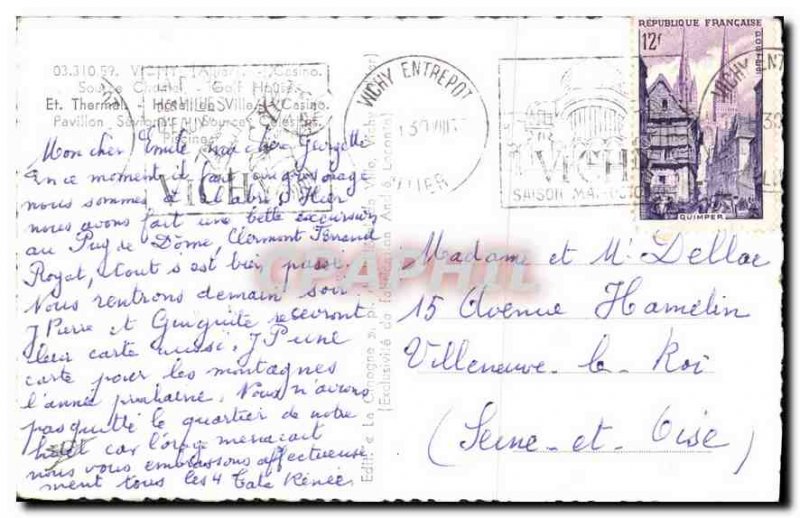 RÉPUBLIQUE FRANÇAISE
12f
QUIMPER
VICHY ENTREPOT
ALLIER
VICHY
SAISON MAI-OCTOBRE
VICHY
03.310.59. VICHY (Allier) - Casino.
Source - Golf House.
Et. Thermal - Hôtel de Ville - Casino
Pavillon Sévigné - Source Célestins
Mon cher Emile ma chère Georgette
En ce moment il fait un gros orage
nous sommes à l'abri. Hier
nous avons fait une belle excursion
au Puy de Dôme, Clermont Ferrand
Royat, tout s'est bien passé.
Nous rentrons demain soir
J Pierre et Guiguite recevront
leur carte aussi, J P une
carte pour les montagnes
l'année prochaine. Nous n'avions
pas quitté le quartier de notre
hôtel car l'orage menaçait
nous vous embrassons affectueuse
ment tous les 4 Tata Renée
Madame et Mr Dellac
15 Avenue Hamelin
Villeneuve-le-Roi
(Seine-et-Oise)
GRAPHIL